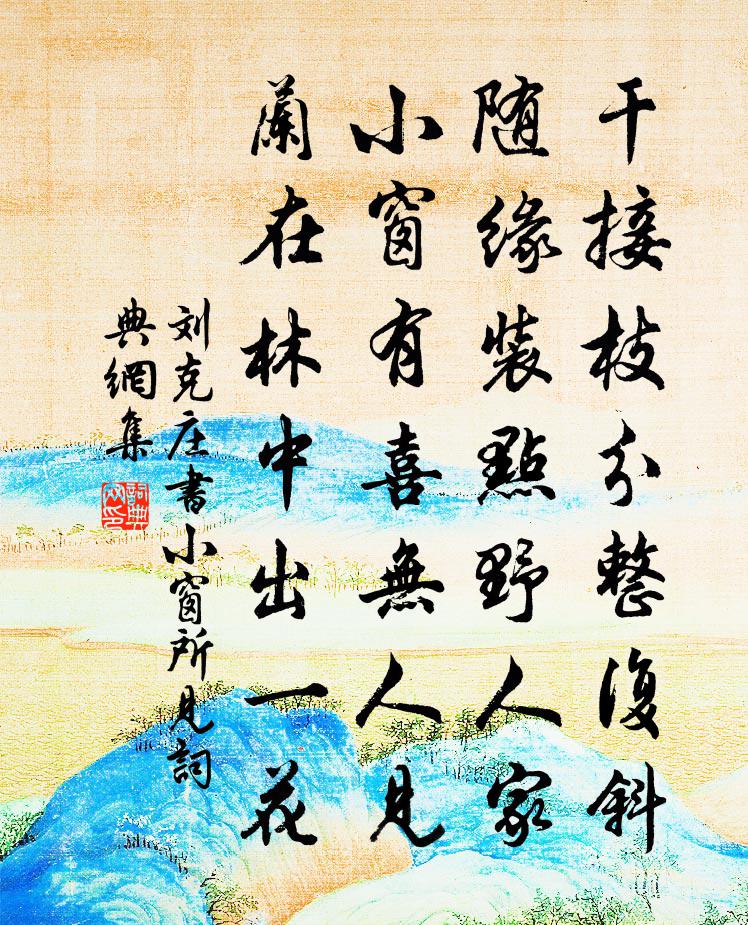 干接枝分整復斜
随缘裝點野人家
小窗有喜無人見
蘭在林中出一花
刘克庄書小窗所見詞
典網集
詞典
网印